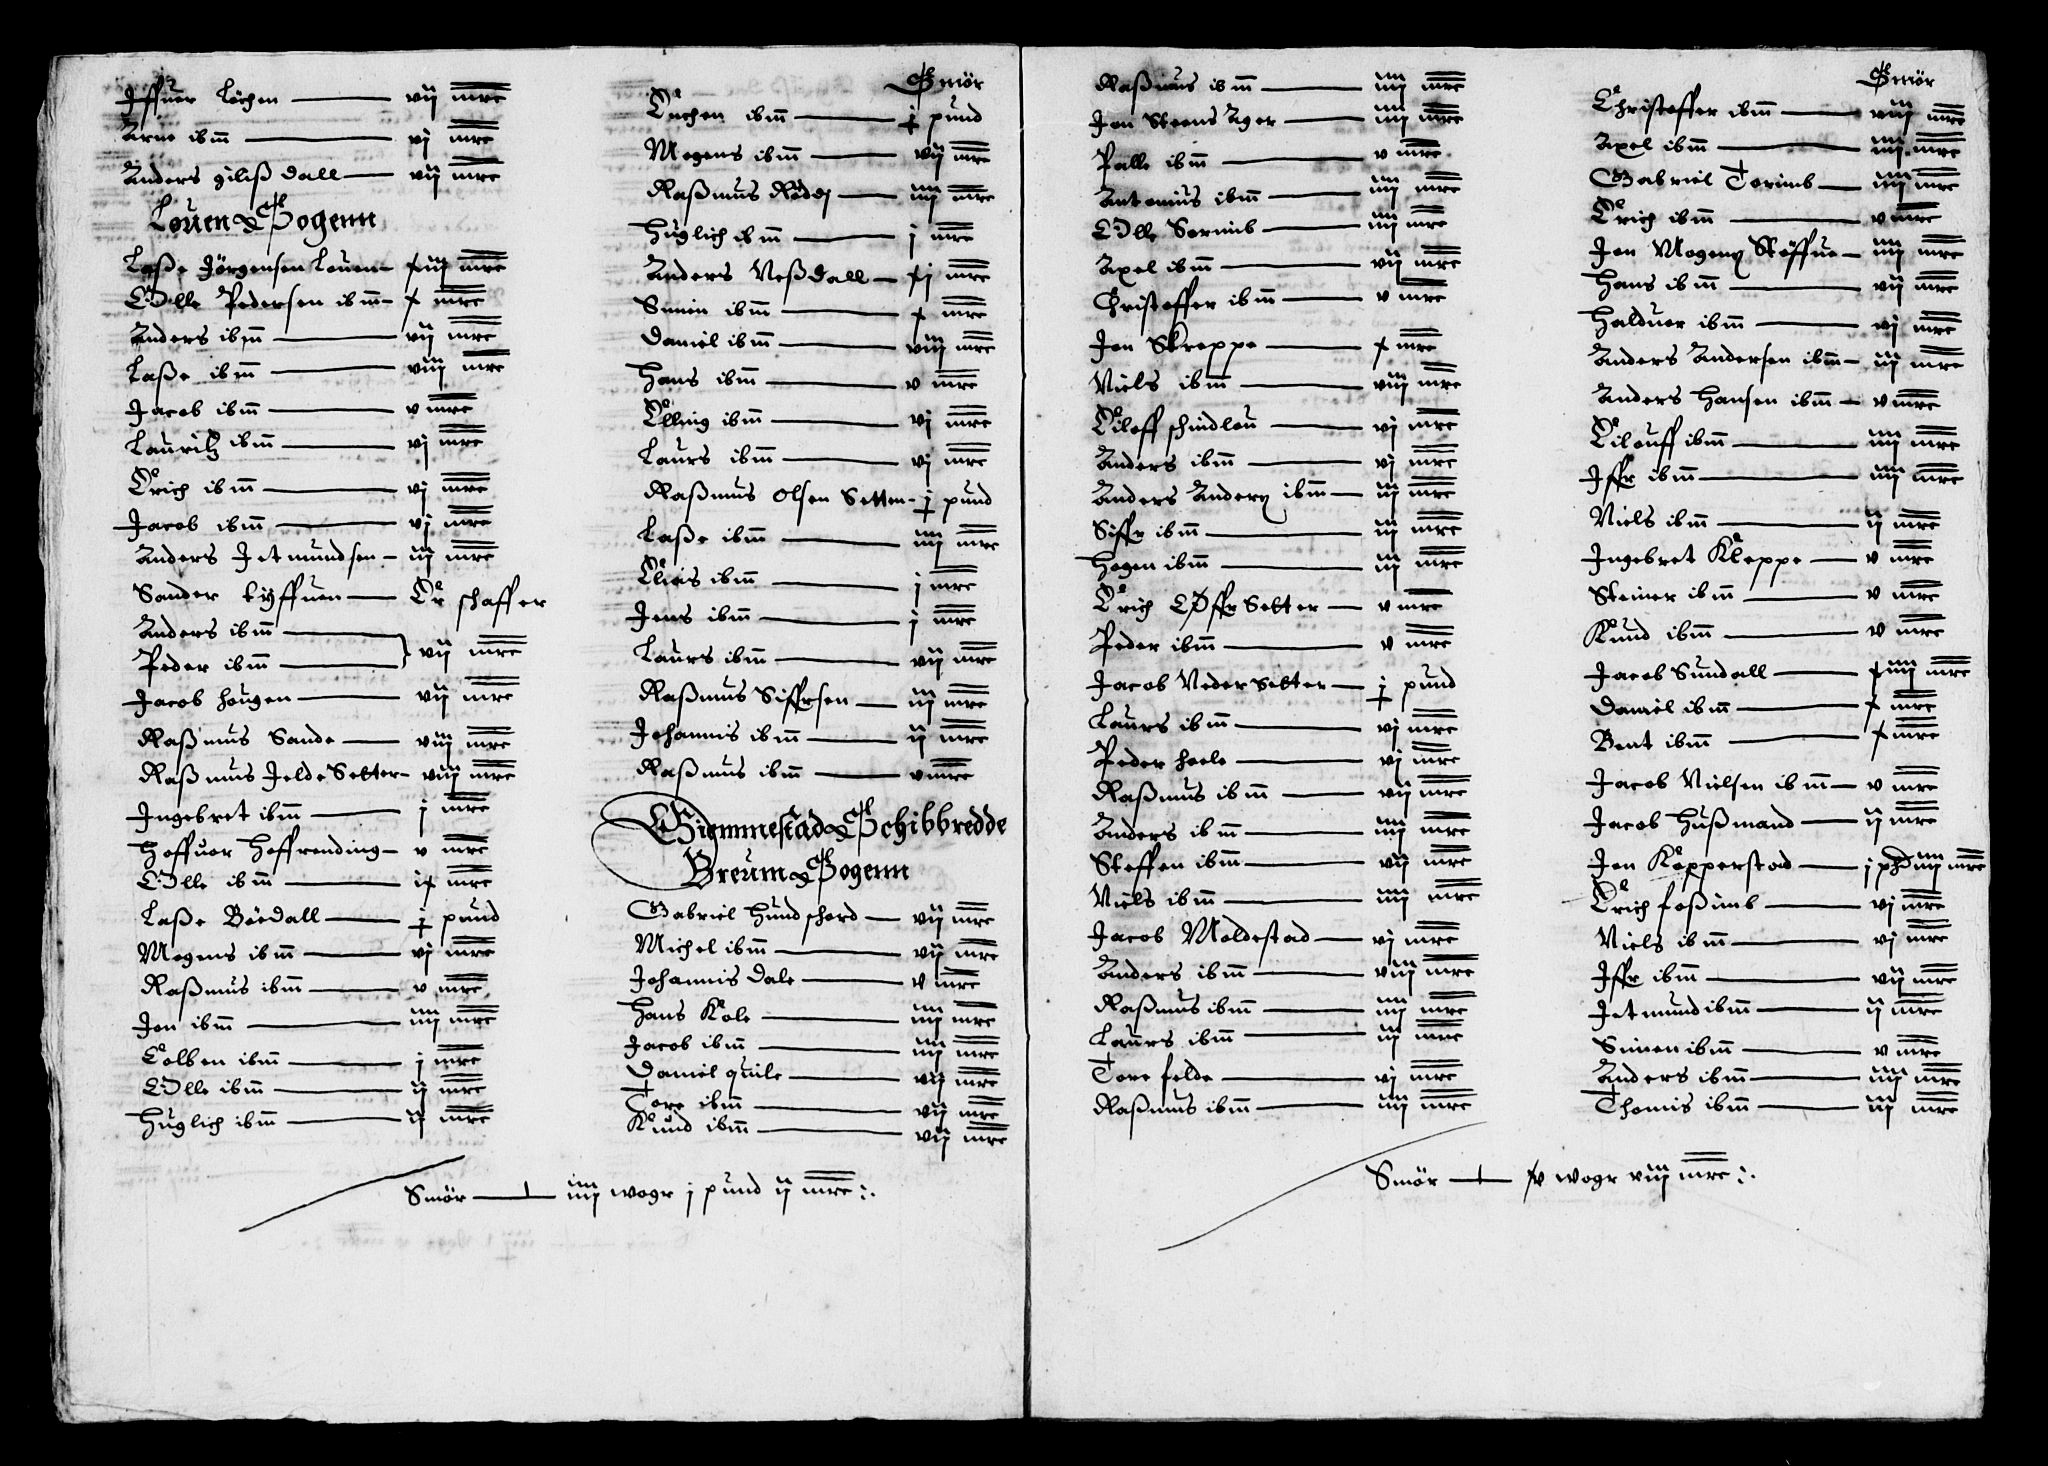 Iffuer Løchen — vij mrc
Arne ibm — vj mrc
Anders gilisdall — vij mrc
Louens Sogenn
Lasse Jørgensen Louen — xiij mrc
Olle Pedersen ibm — x mrc
Anders ibm — vij mrc
Lasse ibm — viij mrc
Jacob ibm — v mrc
Lauritz ibm — vj mrc
Erich ibm — vj mrc
Jacob ibm — vj mrc
Anders Jetmundsen — iij mrc
Sander tyffuen — Er schaffer
Anders ibm —
Peder ibm — } vij mrc
Jacob hougen — vij mrc
Rasmus Sande — viij mrc
Rasmus Jelde Setter — viij mrc
Ingebret ibm — j mrc
Hoffuor Heffrending — v mrc
Olle ibm — ix mrc
Lasse Bøedall — j pund
Mogens ibm — vj mrc
Rasmus ibm — v mrc
Jon ibm — iiij mrc
Colben ibm — j mrc
Olle ibm — ij mrc
Huglich ibm — ij mrc
Smør
ibm — j pund
Mogens ibm — vij mrc
Rasmus Rødej — iiij mrc
Huglich ibm — j mrc
Anders Vessdall — xj mrc
Simen ibm — x mrc
Daniel ibm — viij mrc
Hans ibm — v mrc
Elling ibm — vj mrc
Laurs ibm — vj mrc
Rasmus Olsen Setten — j pund
Lasse ibm — iiij mrc
Elias ibm — j mrc
Jens ibm — j mrc
Laurs ibm — vij mrc
Rasmus Siffrsen — iij mrc
Johannis ibm — ij mrc
Rasmus ibm — v mrc
Giemmestads Schibbredde
Breums Sogenn
Gabriel Hundschord — vij mrc
Michel ibm — vij mrc
Johannis Dale — v mrc
Hans Kole — iiij mrc
Jacob ibm — iiij mrc
Daniel quile — vij mrc
Tore ibm — vij mrc
Knud ibm — vij mrc
Smør — iiij wogr j pund ij mrc
Rasmus ibm — iiij mrc
Jon Steens Ager — iiij mrc
Palle ibm — v mrc
Antonius ibm — iiij mrc
Olle Sorimb — iiij mrc
Axel ibm — vij mrc
Christoffer ibm — v mrc
Jon Skreppe — x mrc
Niels ibm — viij mrc
Eiloff schindlou — vj mrc
Anders ibm — vj mrc
Anders Anders ibm — iij mrc
Siffr ibm — iij mrc
Hogen ibm — iij mrc
Erich Øffrsetter — v mrc
Peder ibm — v mrc
Jacob Nedersetter — j pund
Laurs ibm — vj mrc
Peder hoele — vj mrc
Rasmus ibm — vij mrc
Anders ibm — iiij mrc
Steffen ibm — vij mrc
Niels ibm — iiij mrc
Jacob Moldestad — vj mrc
Anders ibm — viij mrc
Rasmus ibm — iiij mrc
Laurs ibm — iij mrc
Tore felde — vj mrc
Rasmus ibm — iiij mrc
Smør
Christoffer ibm — viij mrc
Axel ibm — iiij mrc
Gabriel Torimb — iiij mrc
Erich ibm — v mrc
Jon Mogens Støffue — iiij mrc
Hans ibm — vij mrc
Halduor ibm — vj mrc
Anders Andersen ibm — iij mrc
Anders Hansen ibm — v mrc
Eilouff ibm — iiij mrc
Iffr ibm — iiij mrc
Niels ibm — ij mrc
Ingebret Kleppe — v mrc
Steiner ibm — v mrc
Knud ibm — v mrc
Jacob Sundall — xiiij mrc
Daniel ibm — x mrc
Bent ibm — x mrc
Jacob Nielsen ibm — v mrc
Jacob Hussmand — ij mrc
Jon Kopperstad — j pd iiij mrc
Erich fossimb — vj mrc
Niels ibm — vj mrc
Iffr ibm — vij mrc
Jetmund ibm — ij mrc
Simen ibm — v mrc
Anders ibm — iiij mrc
Thomis ibm — iij mrc
Smør — xv wogr viij mrc